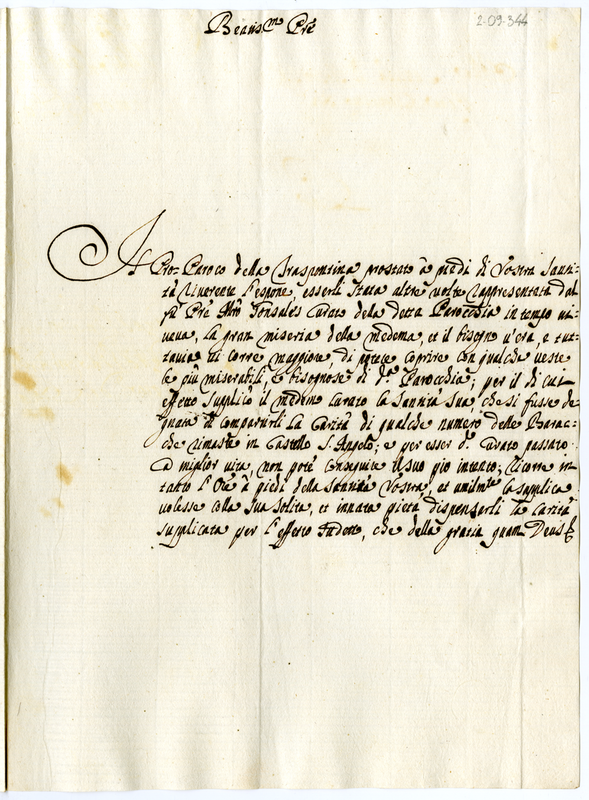 2-09-344
Beatis.mo Pre
Il Pro-Paroco della Traspontina prostato à piedi di Vostra Santi-
tà riverente l'espone, esserli stata altre volte rappresentata dal
fù Pre Gonsales Curato della detta Parocchia in tempo vi-
veva, la gran miseria della medema, et il bisogno v'era, e tut-
tavia vi corre maggiore, di potere coprire con qualche veste
le più miserabili, e bisognose di d.a Parocchia; per il di cui
effetto supplicò il medemo Curato la Santità Sua, che si fusse de-
gnata di compartirli la Carità di qualche numero delle Barac-
che rimaste in Castello S. Angelo; e per esser d.o Curato passato
a miglior vita, non potè conseguire il suo pio intento; ricorre in-
tanto l'Ore à piedi della Santità Vostra, et umilm.te la supplica
volesse colla sua solita, et innata pietà dispensarli la carità
supplicata per l'effetto sudetto, che della gratia quam Deus &